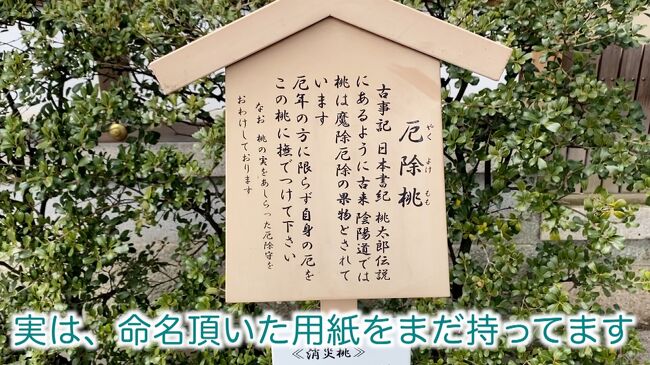 厄除桃
やく よけ もも
古事記 日本書紀 桃太郎伝説
にあるように古来 陰陽道では
桃は魔除厄除の果物とされて
います
厄年の方に限らず自身の厄を
この桃に撫でつけて下さい
なお 桃の実をあしらった厄除守を
おわけしております
実は、命名頂いた用紙をまだ持ってます
≪消災桃≫